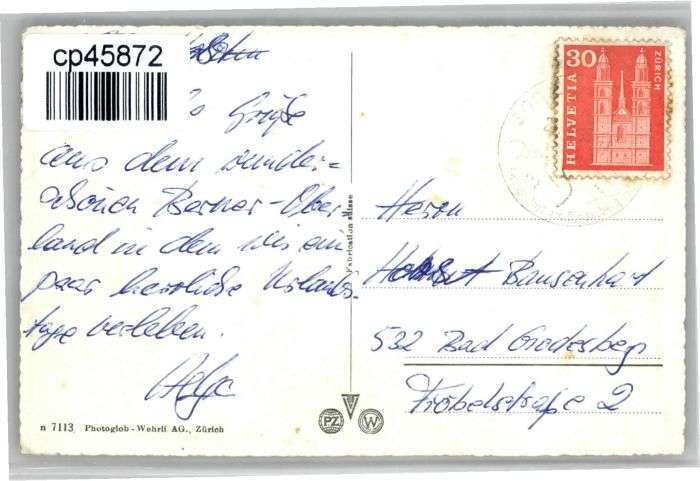 cp45872
Grüße
aus dem wunder=
schönen Berner-Ober
land in dem wir ein
paar herrliche Urlaubs-
tage verleben.
Helga
n 7113 Photoglob - Wehrli AG., Zürich
Fabrication Suisse
PZ W
30
HELVETIA
ZÜRICH
Herrn
Bausenhart
532 Bad Godesberg
Fröbelstraße 2